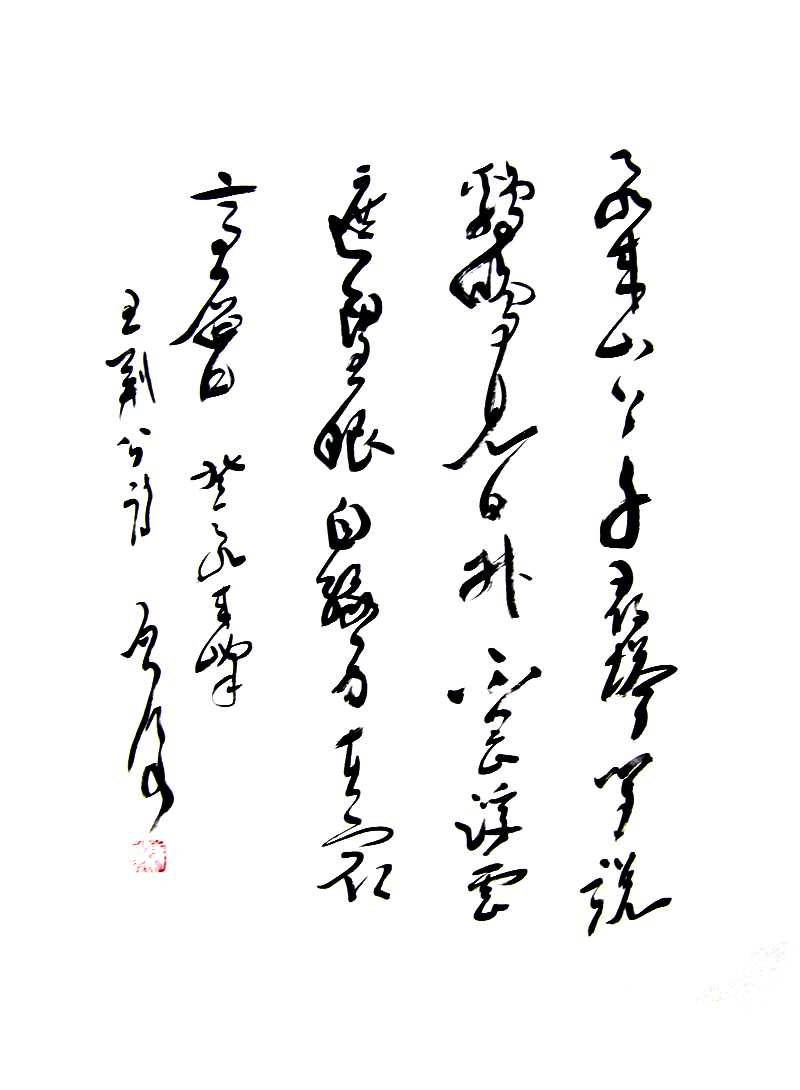 飛來山上千尋塔聞說
鷄鳴見日升不畏浮雲
遮望眼自緣身在最
高層 登飛來峰
王荊公詩